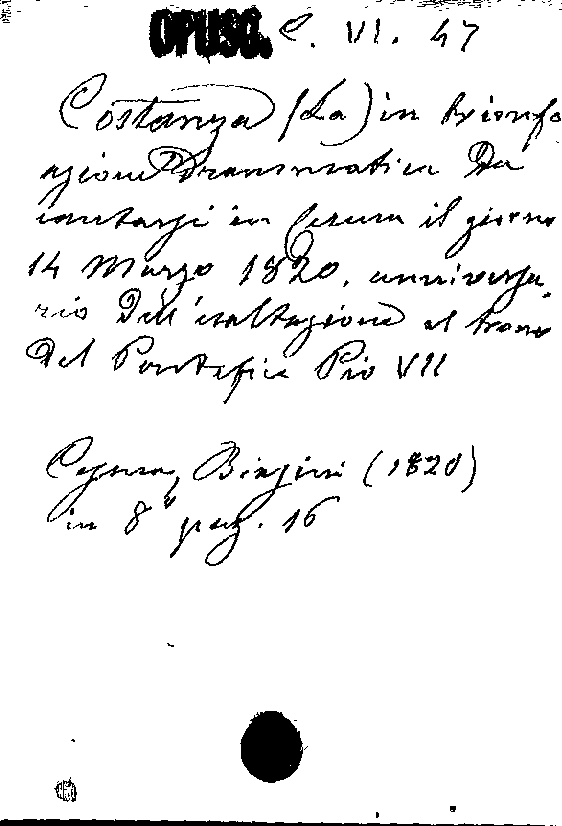 OPUSC. C. VI. 47
Costanza (La) in trionfo
azione Drammatica Da
cantarsi in Cesena il giorno
14 Marzo 1820, anniversa-
rio Dell'esaltazione al trono
Del Pontefice Pio VII
Cesena, Biasini (1820)
in 8° pag. 16